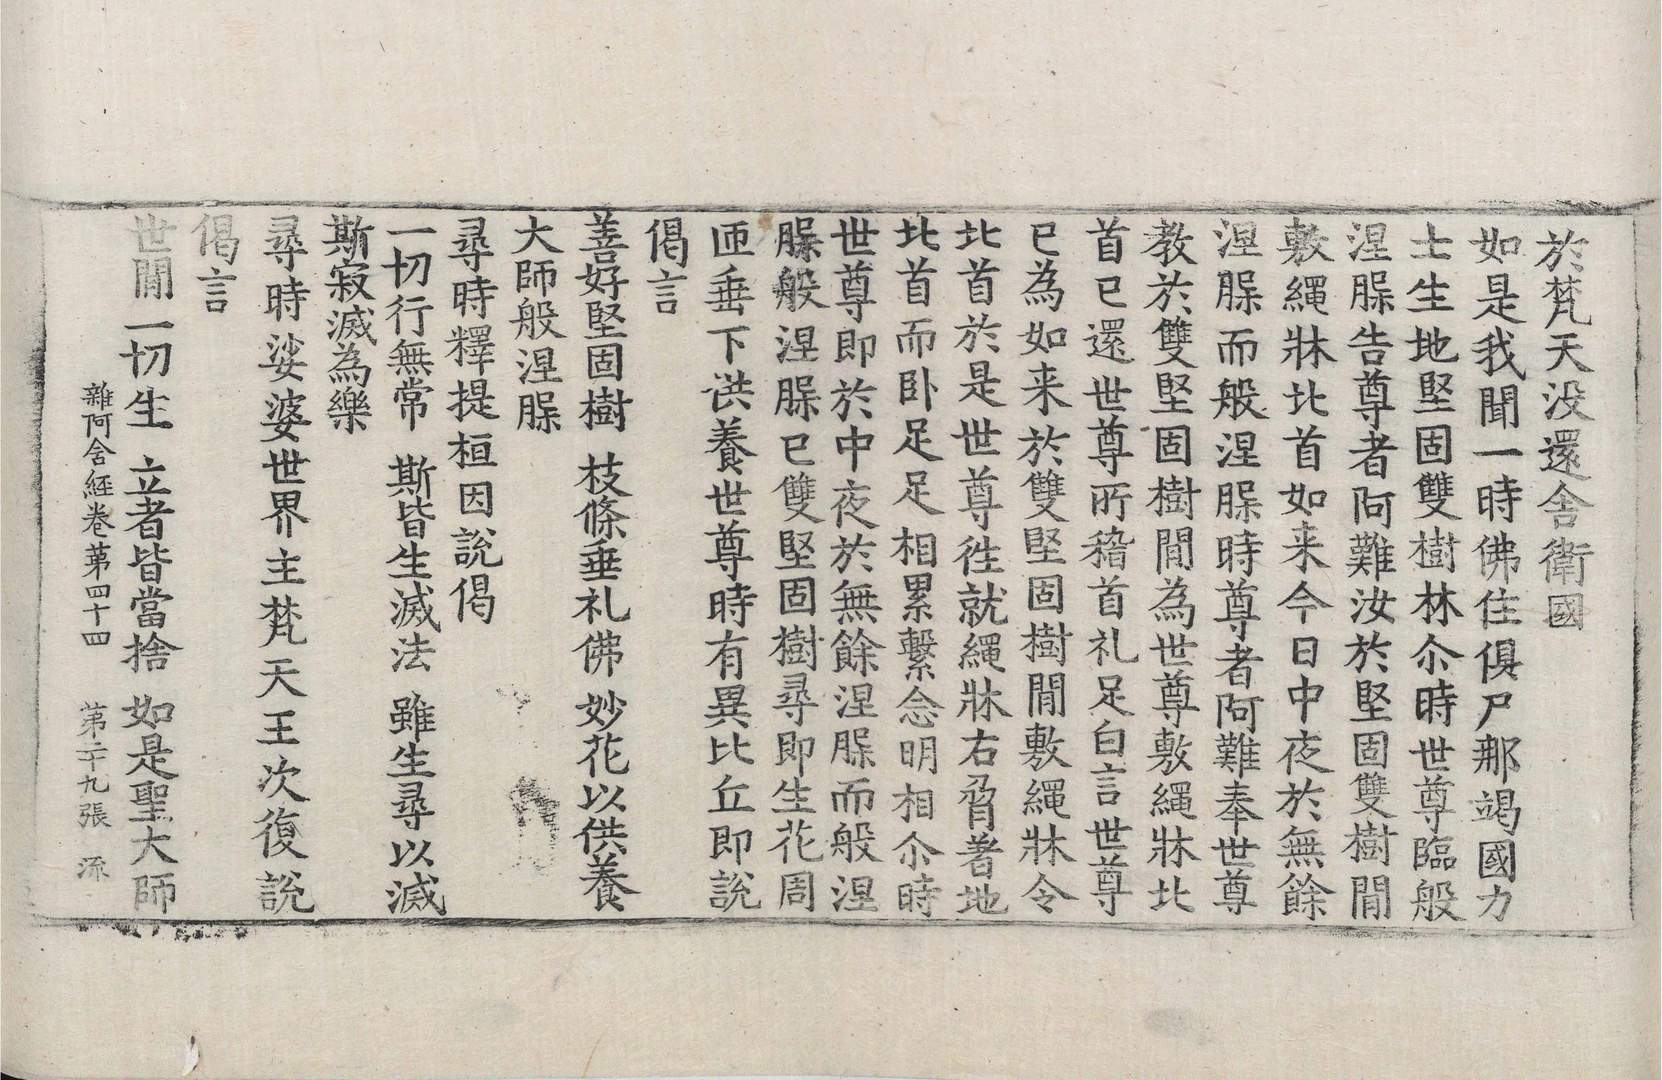 於梵天没還舍衛國
如是我聞一時佛住俱尸那竭國力
士生地堅固雙樹林尒時世尊臨般
涅脲告尊者阿難汝於堅固雙樹閒
敷繩牀北首如来今日中夜於無餘
涅脲而般涅脲時尊者阿難奉世尊
教於雙堅固樹閒為世尊敷繩牀北
首已還世尊所稽首礼足白言世尊
已為如来於雙堅固樹閒敷繩牀令
北首於是世尊徃就繩牀右脅著地
北首而卧足足相累繫念明相尒時
世尊即於中夜於無餘涅脲而般涅
脲般涅脲已雙堅固樹尋即生花周
匝垂下供養世尊時有異比丘即說
偈言
善好堅固樹 枝條垂礼佛 妙花以供養
大師般涅脲
尋時釋提桓因說偈
一切行無常 斯皆生滅法 雖生尋以滅
斯寂滅為樂
尋時娑婆世界主梵天王次復說
偈言
世閒一切生 立者皆當捨 如是聖大師
雜阿含經卷第四十四 第二十九張 流